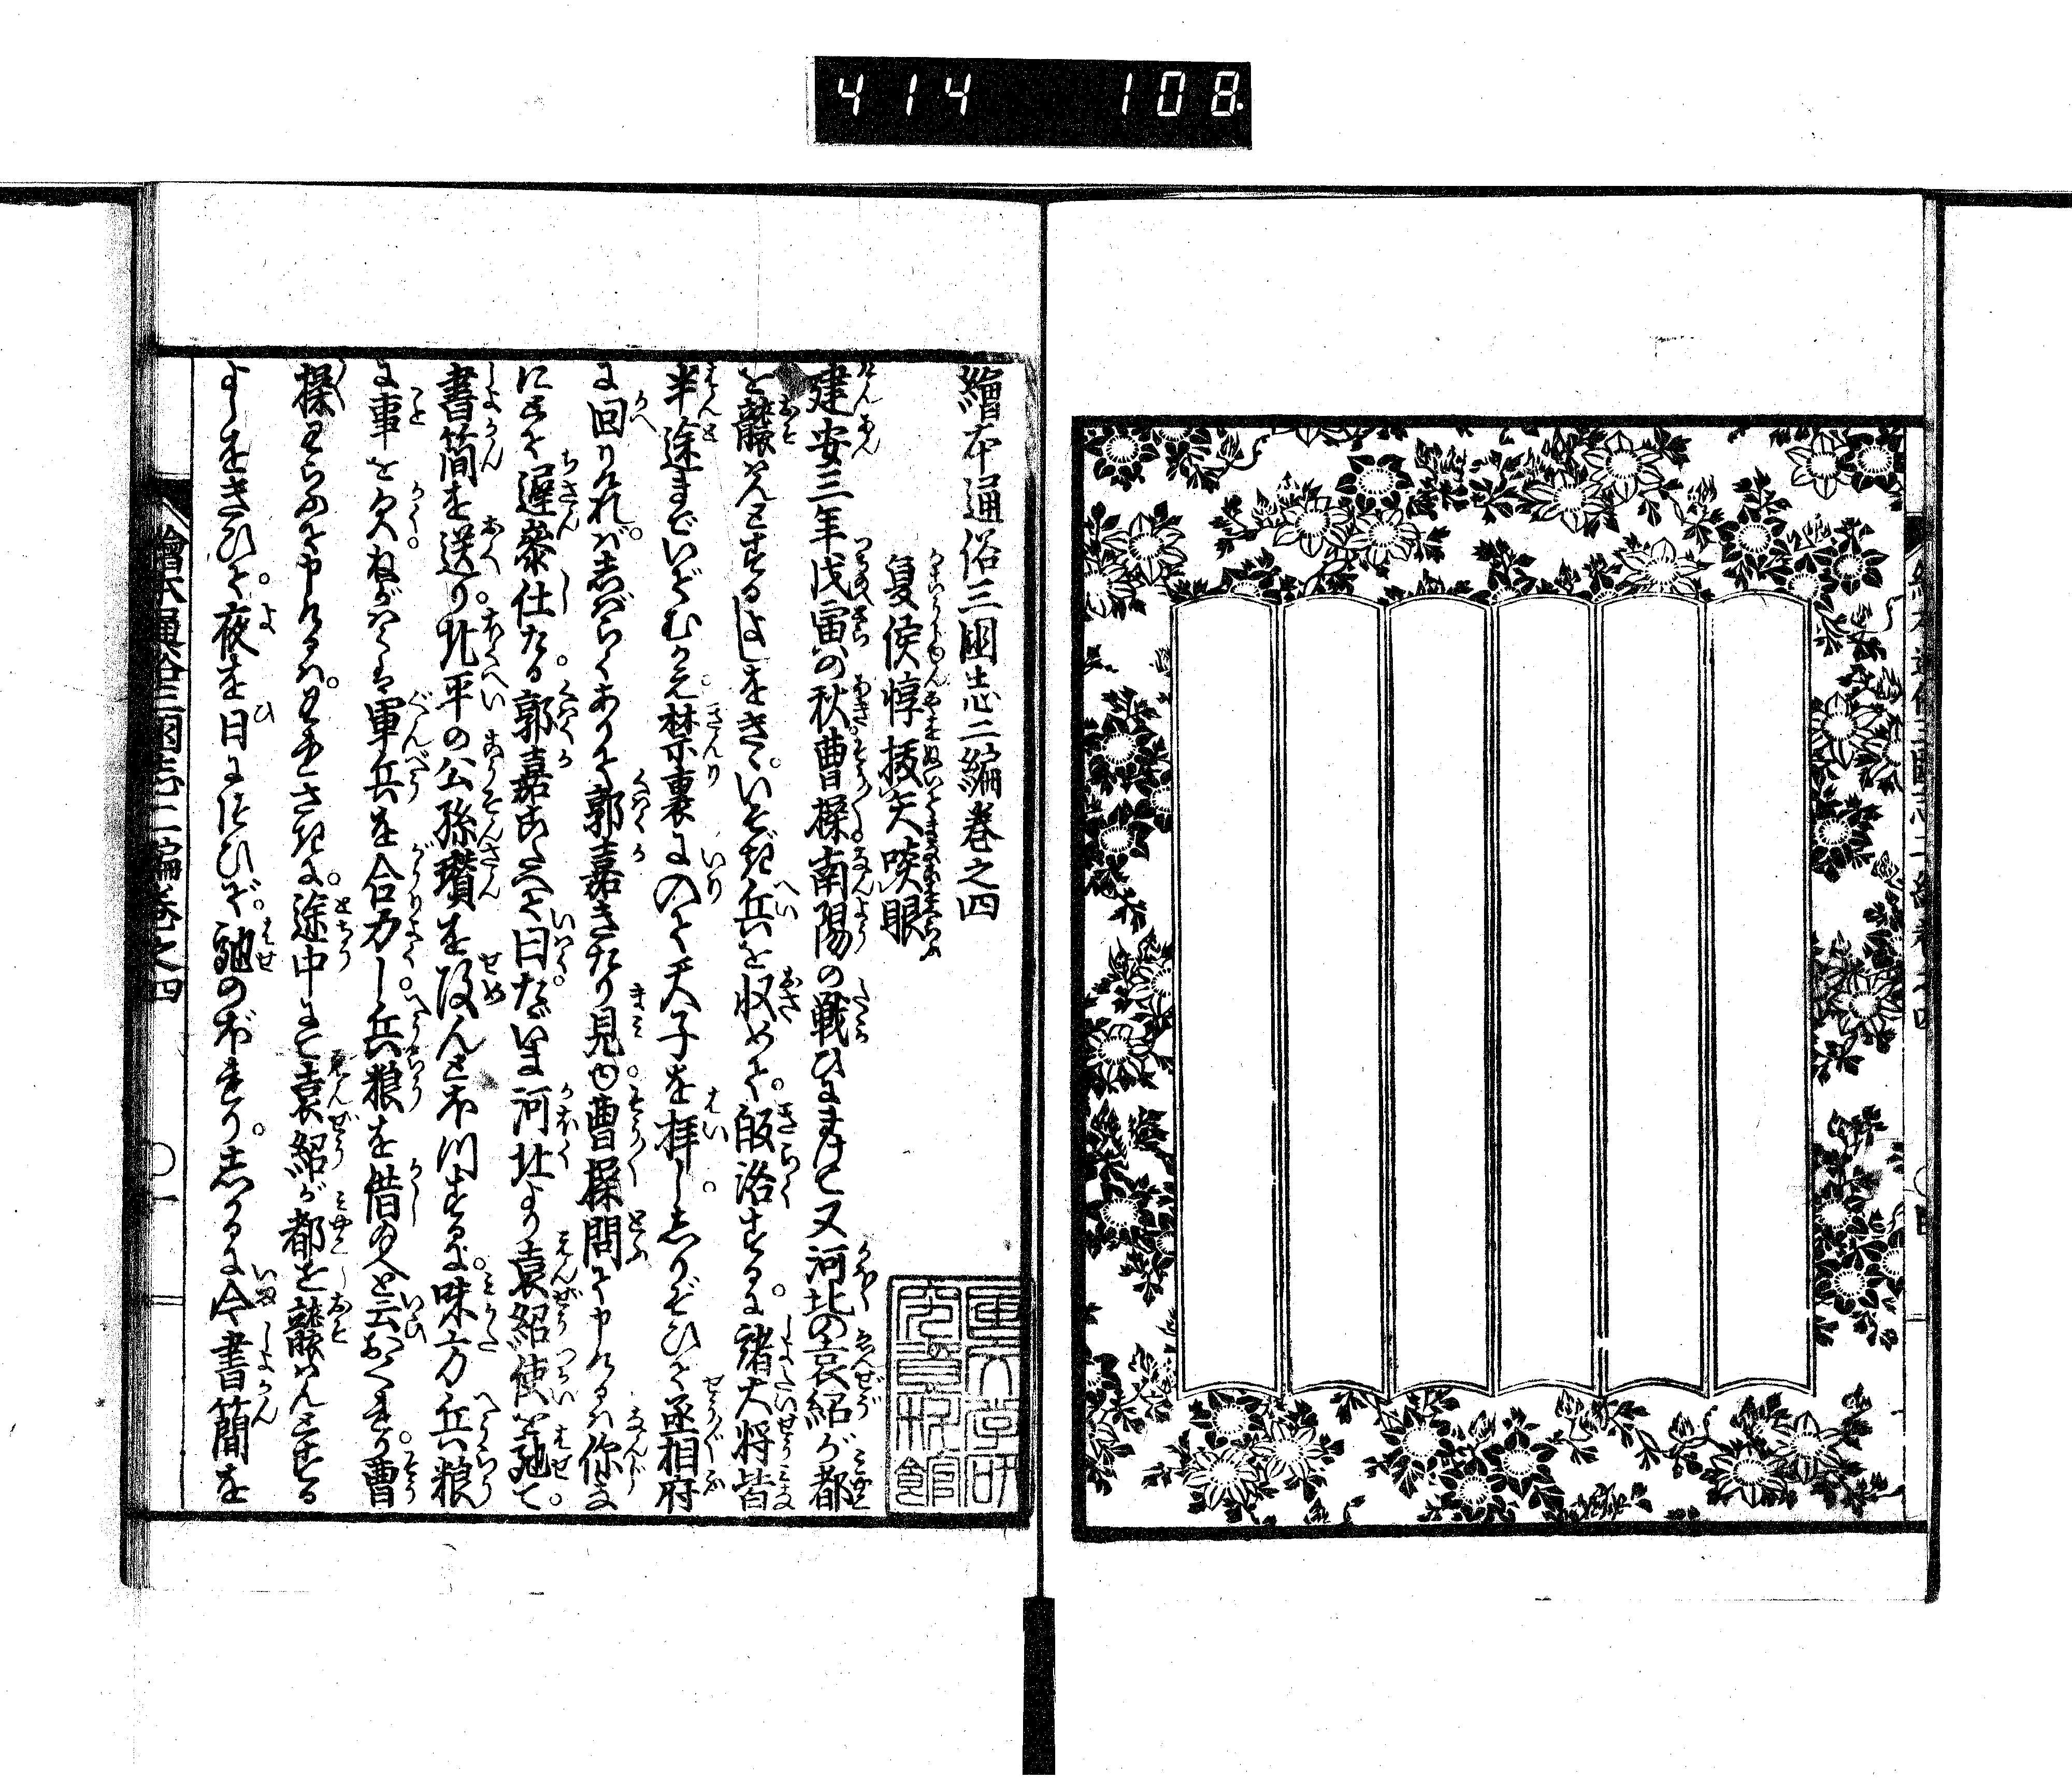 414 108
繪本通俗三國志二編巻之四
夏侯惇拔矢啖眼
建安三年戊寅の秋曹操南陽の戦ひにまけて又河北の袁紹が都
を襲はんとするよしをきゝいそぎ兵を収めて皈洛するに諸大将皆
半途までいでむかえ禁裏に入て天子を拝ししりぞひて丞相府
に回りければしばらくありて郭嘉きたり見ゆ曹操問て申けるは你
に遅参仕たる郭嘉こたへて曰たゞいま河北より袁紹使を馳て
書簡を送り北平の公孫瓚を攻んと欲するに味方兵粮
に事をかくねがはくは軍兵を合力し兵粮を借給へと云おくれり曹
操わらふて申けるはわれさきに途中にて袁紹が都を襲はんとする
よしをきひて夜を日につひで馳のぼれりしかるに今書簡を
繪本通俗三國志二編巻之四 ○一